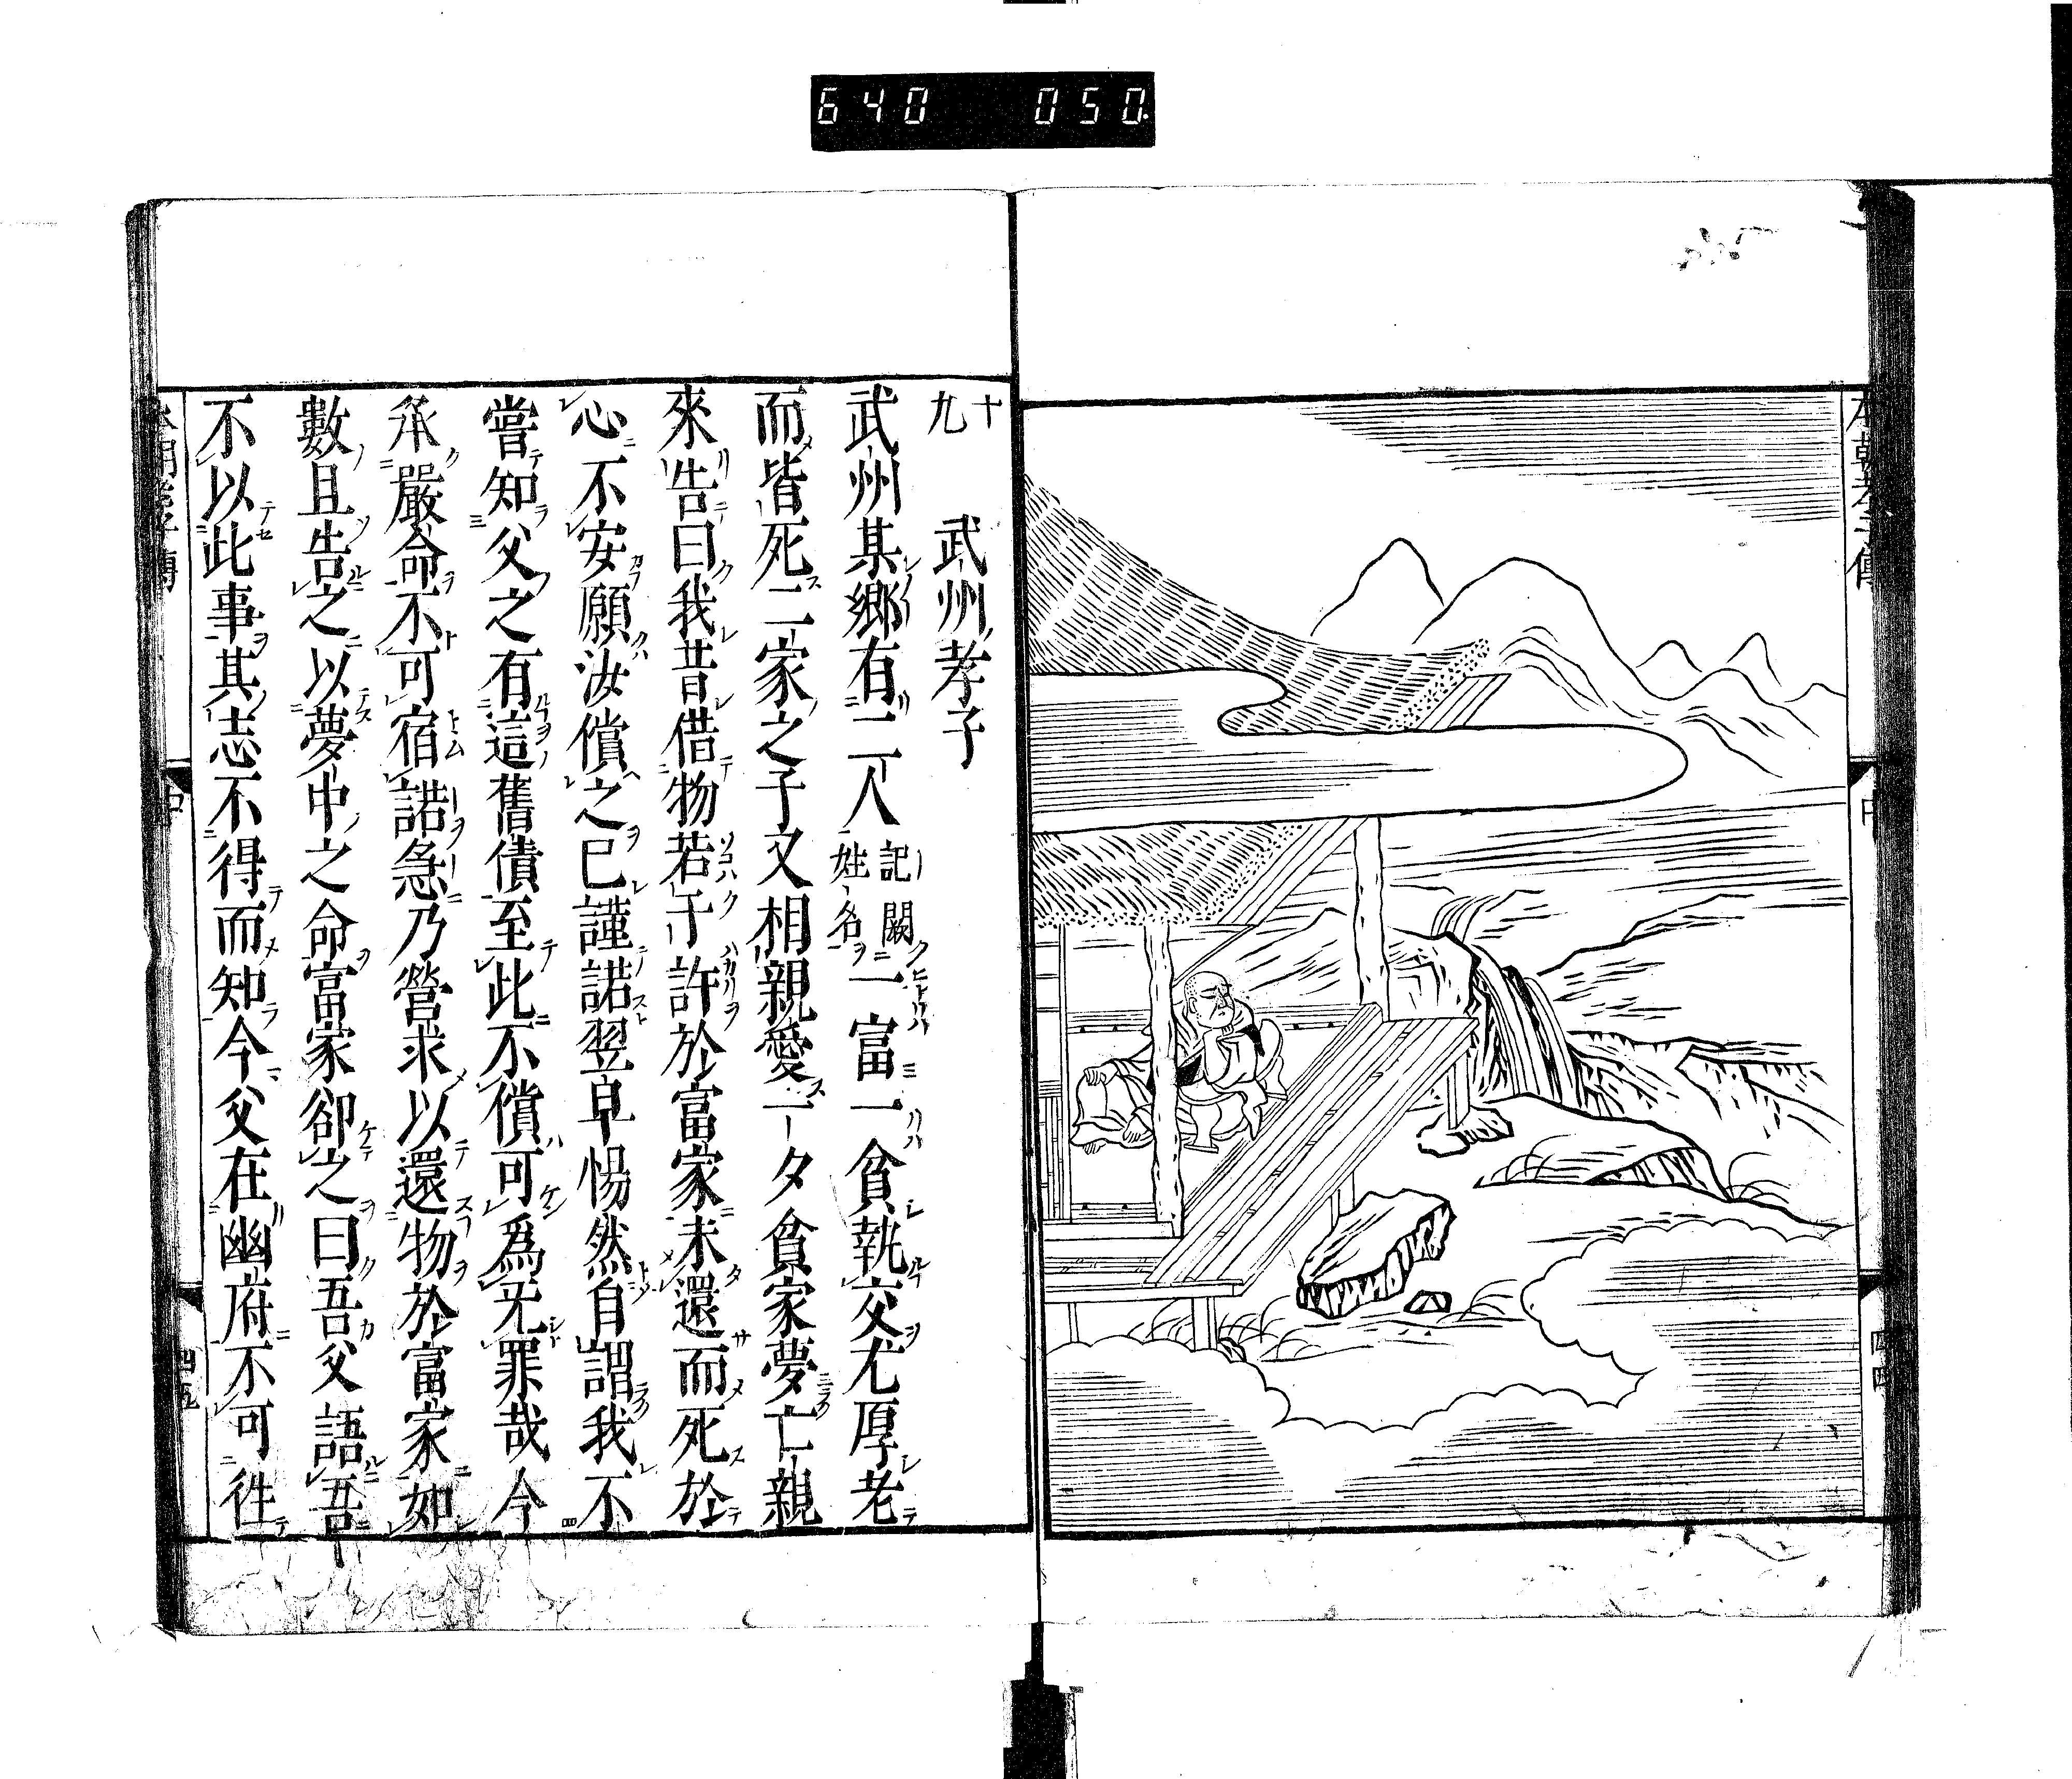 640 050
本朝孝子傳
中
四四
十九
武州孝子
武州某鄉有二人記闕姓名一富一貧執交尤厚老
而皆死二家之子又相親愛一夕貧家夢亡親
來告曰我昔借物若干許於富家未還而死於
心不安願汝償之已謹諾翌早惕然自謂我不
嘗知父之有這舊債至此不償可爲无罪哉今
承嚴命不可宿諾急乃營求以還物於富家如
數且告之以夢中之命富家卻之曰吾父語吾
不以此事其志不得而知今父在幽府不可徃
本朝孝子傳
中
四五